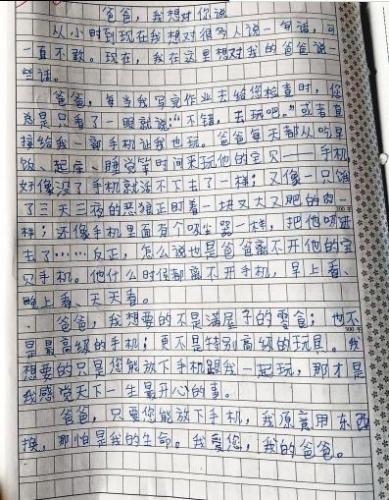 爸爸,我想对你说
从小时到现在我想对很多人说一句话,可
一直不敢。现在,我在这里想对我的爸爸说一
些话。
爸爸,每当我写完作业去给您检查时,你
总是只看了一眼就说:“不错,去玩吧。”或者直
接给我一部手机让我也玩。爸爸每天都从吃早
饭、起床、睡觉等时间来玩他的宝贝——手机,
好像没了手机就活不下去了一样;又像一只饿
了三天三夜的恶狼正盯着一块又大又肥的肉一
样;还像手机里面有个吸尘器一样,把他吸进
去了……反正,怎么说也是爸爸离不开他的宝
贝手机。他什么时候都离不开手机,早上看、
晚上看、天天看。
爸爸,我想要的不是满屋子的零食;也不
是最高级的手机;更不是特别高级的玩具。我
想要的只是您能放下手机跟我一起玩,那才是
我感觉天下一生最开心的事。
爸爸,只要您能放下手机,我愿意用东西
换,那怕是我的生命。我爱您,我的爸爸。
300字